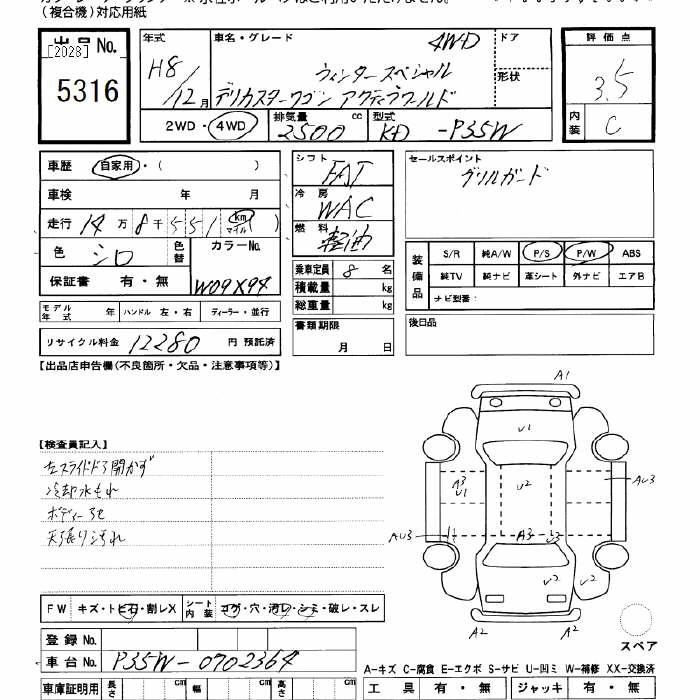 (複合機)対応用紙
出品No.
[2028]
5316
年式
H8/12月
車名・グレード
4WD
ウィンタースペシャル
デリカスターワゴン アクティブワールド
ドア
形状
2WD・4WD
排気量
2500 cc
型式
KD -P35W
評価点
3.5
内装
C
車歴 自家用・( )
車検 年 月
走行 14万8千551 km マイル ( )
色 シロ 色替 カラーNo.
保証書 有・無 W09X94
モデル年式 年 ハンドル 左・右 ディーラー・並行
リサイクル料金 12280 円 預託済
シフト FAT
冷房 WAC
燃料 軽油
乗車定員 8 名
積載量 kg
総重量 kg
書類期限
月 日
セールスポイント
グリルガード
装備品
S/R 純A/W P/S P/W ABS
純TV 純ナビ 革シート 外ナビ エアB
ナビ型番:
後日品
【出品店申告欄(不良箇所・欠品・注意事項等)】
【検査員記入】
左スライドドア開かず
冷却水もれ
ボディー色セ
天張り汚れ
A1
U1
A3
U1
U2
AU3
AU3
A3
U3
U2
U2
A2
A2
スペア
FW キズ・トビ石・割レX シート内装 コゲ・穴・汚レ・シミ・破レ・スレ
登録No.
車台No. P35W-0702364
車庫証明用 長さ cm 幅 cm 高さ cm
A-キズ C-腐食 E-エクボ S-サビ U-凹ミ W-補修 XX-交換済
工具 有・無 ジャッキ 有・無